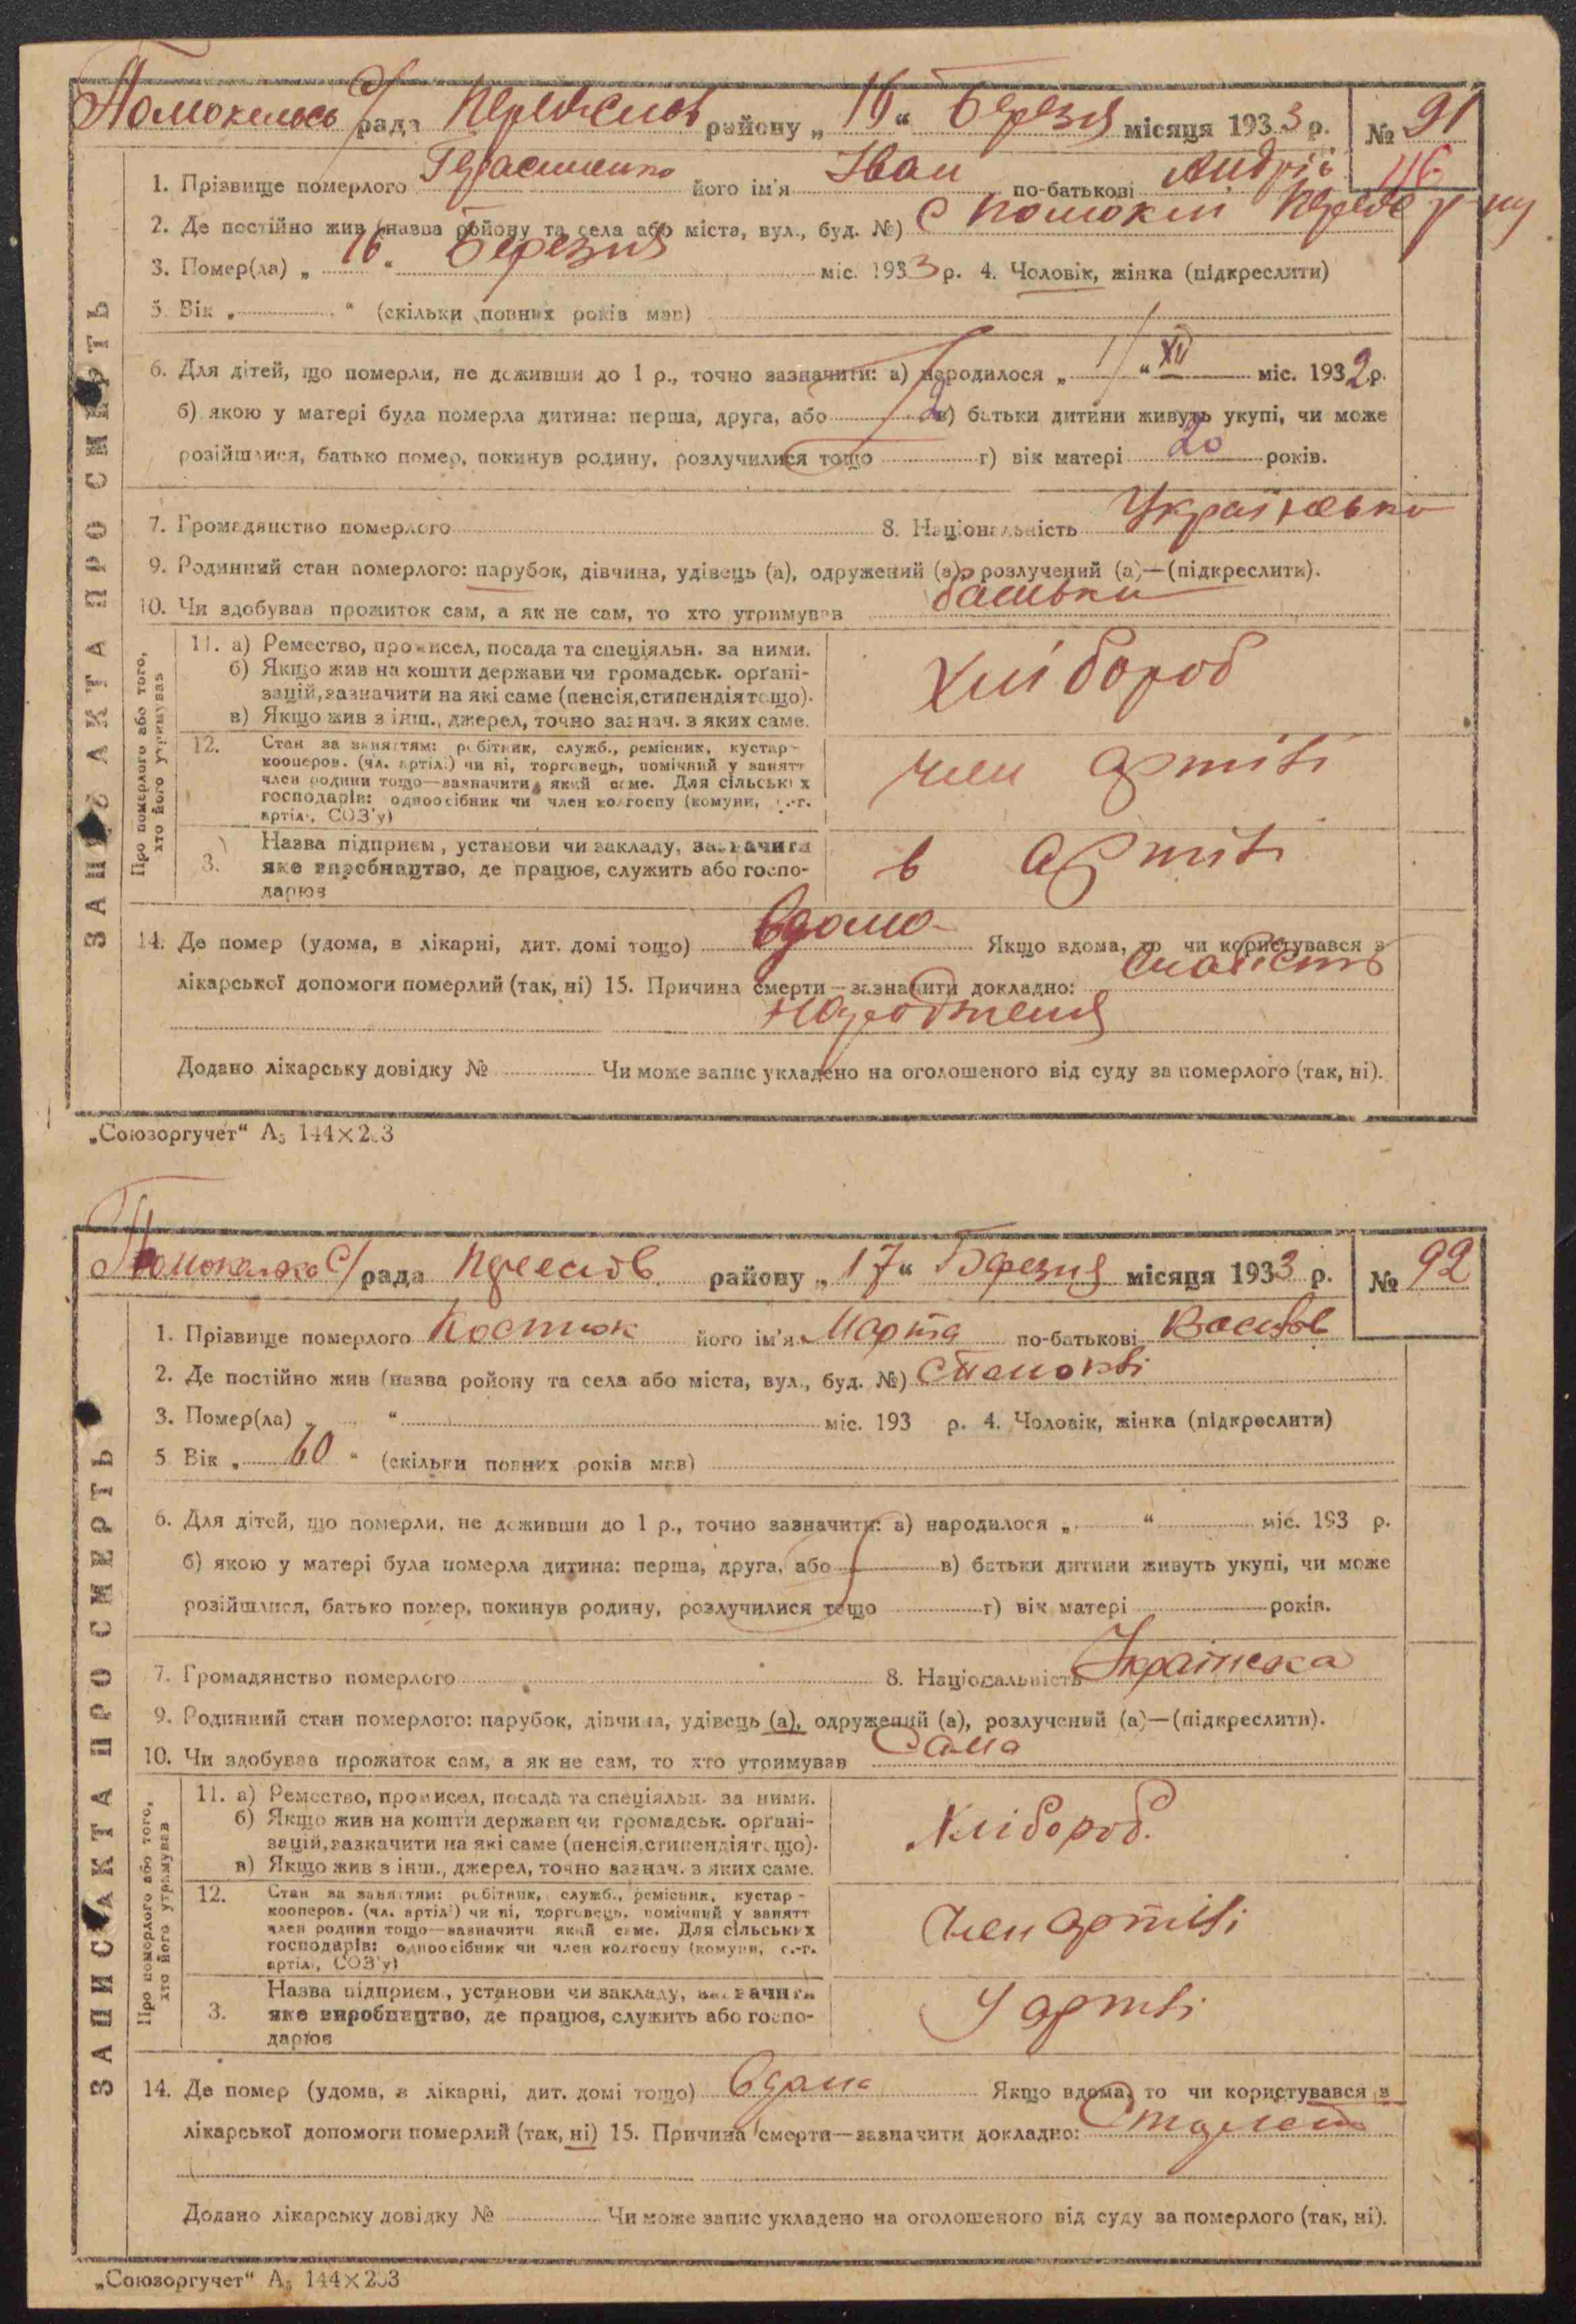 рада району „ 16 “ Березня місяця 1933 р. № 91
116
1. Прізвище померлого Герасименко його ім'я Іван по-батькові Андрій
2. Де постійно жив (назва ройону та села або міста, вул., буд. №) с
3. Помер(ла) „ 16 “ Березня міс. 1933 р. 4. Чоловік, жінка (підкреслити)
5. Вік „ “ (скільки повних років мав)
6. Для дітей, що померли, не доживши до 1 р., точно зазначити: а) народилося „ 1 “ XII міс. 1932 р.
б) якою у матері була померла дитина: перша, друга, або 2 в) батьки дитини живуть укупі, чи може
розійшлися, батько помер, покинув родину, розлучилися тощо г) вік матері 20 років.
7. Громадянство померлого 8. Національність
9. Родинний стан померлого: парубок, дівчина, удівець (а), одружений (а), розлучений (а)—(підкреслити).
10. Чи здобував прожиток сам, а як не сам, то хто утримував батьки
11. а) Ремество, промисел, посада та спеціяльн. за ними.
б) Якщо жив на кошти держави чи громадськ. органі-
зацій, зазначити на які саме (пенсія, стипендія тощо).
в) Якщо жив з інш., джерел, точно зазнач. з яких саме.
Хлібороб
12. Стан за заняттям: робітник, служб., ремісник, кустар-
кооперов. (чл. артілі) чи ні, торговець, помічний у занятт
член родини тощо—зазначити який саме. Для сільських
господарів: одноосібник чи член колгоспу (комуни, с.-г.
артілі, СОЗ'у)
член артілі
3. Назва підприєм., установи чи закладу, зазначити
яке виробництво, де працює, служить або госпо-
дарює
в артілі
Про померлого або того,
хто його утримував
ЗАПИС АКТА ПРО СМЕРТЬ
14. Де помер (удома, в лікарні, дит. домі тощо) вдома Якщо вдома, то чи користувався з
лікарської допомоги померлий (так, ні) 15. Причина смерти—зазначити докладно: слабість
народження
Додано лікарську довідку № Чи може запис укладено на оголошеного від суду за померлого (так, ні).
„Союзоргучет“ А5 144×203
рада району „ 17 “ Березня місяця 1933 р. № 92
1. Прізвище померлого Костюк його ім'я Марта по-батькові
2. Де постійно жив (назва ройону та села або міста, вул., буд. №)
3. Помер(ла) „ “ міс. 193 р. 4. Чоловік, жінка (підкреслити)
5 Вік „ 60 “ (скільки повних років мав)
6. Для дітей, що померли, не доживши до 1 р., точно зазначити: а) народилося „ “ міс. 193 р.
б) якою у матері була померла дитина: перша, друга, або в) батьки дитини живуть укупі, чи може
розійшлися, батько помер, покинув родину, розлучилися тощо г) вік матері років.
7. Громадянство померлого 8. Національність Українска
9. Родинний стан померлого: парубок, дівчина, удівець (а), одружений (а), розлучений (а)—(підкреслити).
10. Чи здобував прожиток сам, а як не сам, то хто утримував Сама
11. а) Ремество, промисел, посада та спеціяльн. за ними.
б) Якщо жив на кошти держави чи громадськ. органі-
зацій, зазначити на які саме (пенсія, стипендія тощо).
в) Якщо жив з інш., джерел, точно зазнач. з яких саме.
Хлібороб.
12. Стан за заняттям: робітник, служб., ремісник, кустар-
кооперов. (чл. артілі) чи ні, торговець, помічний у занятт
член родини тощо—зазначити який саме. Для сільських
господарів: одноосібник чи член колгоспу (комуни, с.-г.
артілі, СОЗ'у)
член артілі
3. Назва підприєм., установи чи закладу, зазначити
яке виробництво, де працює, служить або госпо-
дарює
У артілі
Про померлого або того,
хто його утримував
ЗАПИС АКТА ПРО СМЕРТЬ
14. Де помер (удома, в лікарні, дит. домі тощо) вдома Якщо вдома, то чи користувався з
лікарської допомоги померлий (так, ні) 15. Причина смерти—зазначити докладно:
Додано лікарську довідку № Чи може запис укладено на оголошеного від суду за померлого (так, ні).
„Союзоргучет“ А5 144×203